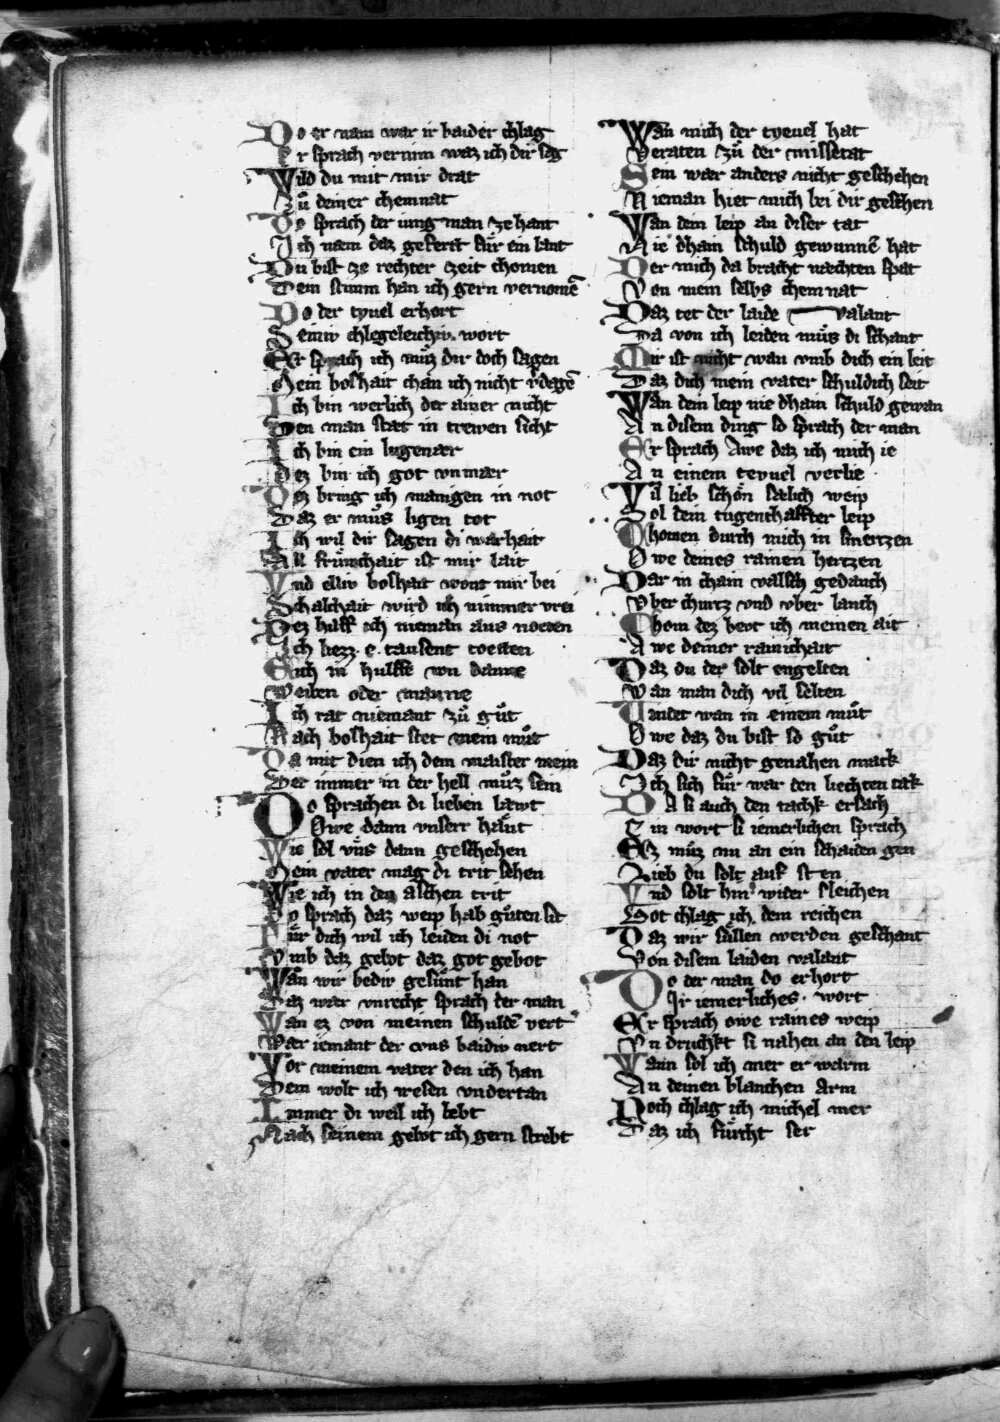 Do er nam war ir baider chlag
Er sprach vernim waz ich dir sag
Wild du mit mir drat
Zů deiner chemnat
Do sprach der iung man ze hant
Ich nem daz geferit fůr ein lant
Du bist ze rechter zeit chomen
Dein stimm han ich gern vernomē
Do der tyuel erhort
Seineiv chlegeleichiv wort
Er sprach ich můz dir doch sagen
Mein boshait chan ich nicht v̄dagē
Ich bin werlich der ainer nicht
Den man stat in trewen sicht
Ich bin ein lugenær
Dez bin ich got vnmær
Oez bring ich manigen in not
Daz er můs ligen tot
Ich wil dir sagen di warhait
All frůmchait ist mir lait
Vnd elliv boshait wont mir bei
Schalchait wird ich nimmer vrei
Dez hilff ich nieman aus noeten
Ich liezz e tausent toeten
Sich in hulffe wn danne
Weiben oder manne
Ich rat niemant zů gůt
Nach boshait stet mein můt
Da mit dien ich dem maister mein
Der immer in der hell můz sein
Do sprachen di lieben læwt
Owe dann vnserr haůt
Wie sol vns dann geschehen
Mein vater mag di trit sehen
Wie ich in den aschen trit
Do sprach daz weip hab gůten sit
Fůr dich wil ich leiden di not
Vmb daz gebot daz got gebot
Wan wir bediv gesůnt han
Daz wær vnrecht sprach der man
Wan ez von meinen schuldē vert
Wær iemant der vns baidiv nert
Vor meinem vater den ich han
Dem wolt ich wesen vndertan
Immer di weil ich lebt
Nach seinem gebot ich gern strebt
Wan mich der tyeuel hat
Veraten zů der missetat
Sein wær anders nicht geschehen
Nieman hiet mich bei dir gesehen
Wan dein leip an diser tat
Nie dhain schuld gewunnē hat
Der mich da bracht næchten spat
Von mein selbs chemnat
Daz tet der laide valant
Da von ich leiden můs di schant
Mir ist nicht wan vmb dich ein leit
Daz dich mein vater schuldich seit
Wan dein leip nie dhain schuld gewan
An disem ding so sprach der man
Er sprach Awe daz ich mich ie
An einem teyuel verlie
Vil lieb schön sælich weip
Sol dein tugenthaffter leip
Chomen durch mich in smertzen
Owe deines rainen hertzen
Dar in chain valsch gedanch
Vber churtz vnd vber lanch
Chom dez bevt ich meinen ait
Awe deiner rainichait
Daz du der solt engelten
Wan man dich vil selten
Vandet wan in einem můt
Owe daz du bist so gůt
Daz dir nicht genahen mack
Ich sich fůr war den liechten tak
Da si auch den tachk ersach
Ein wort si iemerlichen sprach
Ez můz nu an ein schaiden gen
Lieb du solt auf sten
Vnd solt hin wider sleichen
Got chlag ich dem reichen
Daz wir sullen werden geschant
Von disem laiden valant
Do der man do erhort
Ir iemerliches wort
Er sprach owe raines weip
Vn druchkt si nahen an den leip
Wann sol ich mer er warm
An deinen blanchen arm
Noch chlag ich michel mer
Daz ich fůrcht ser